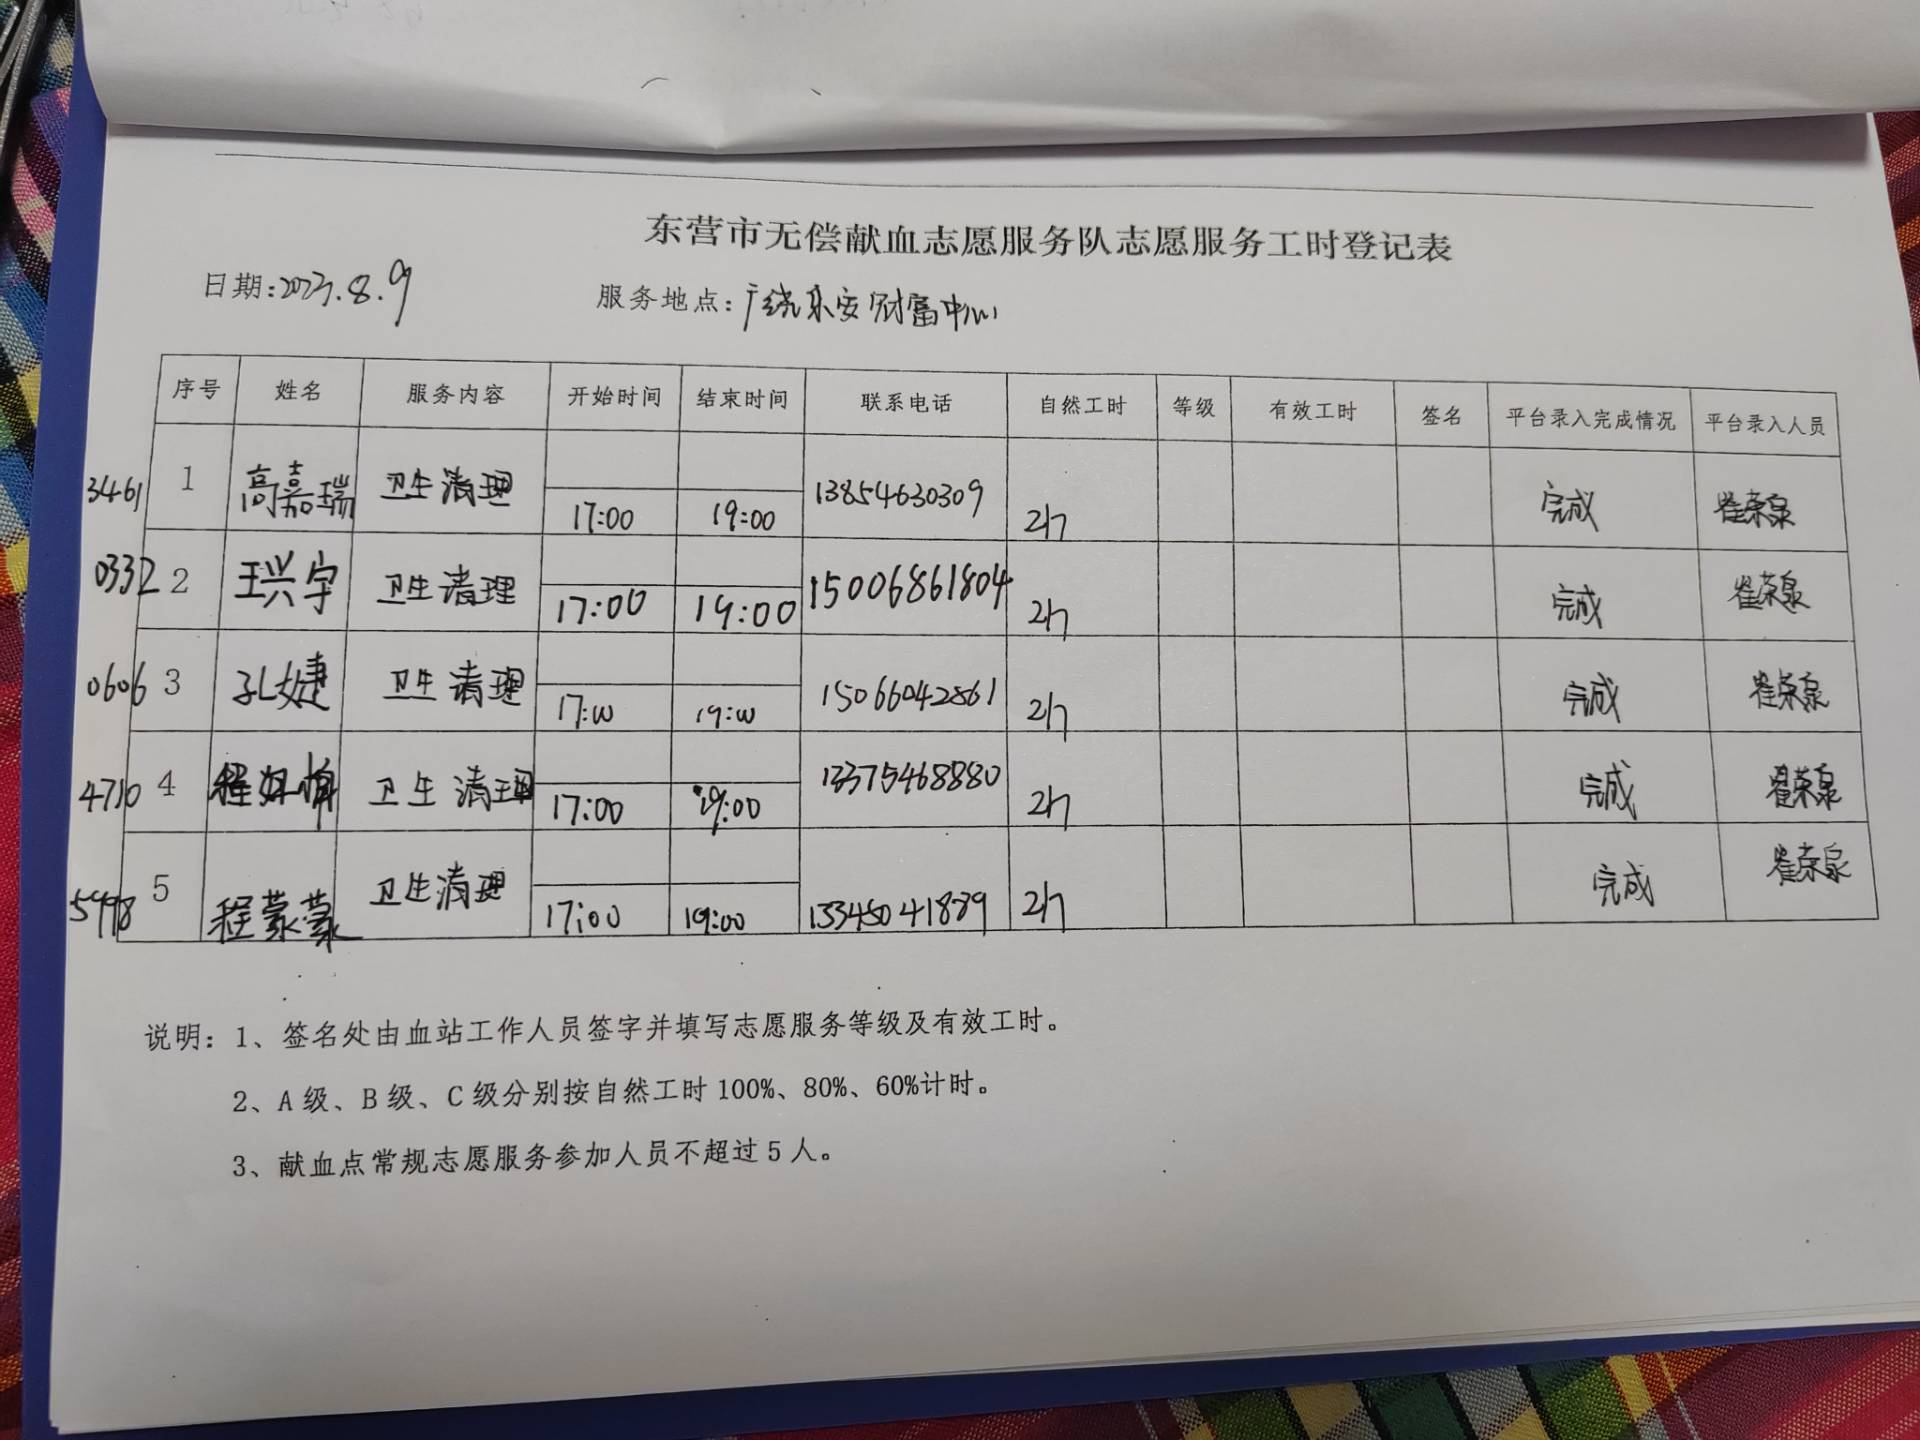 东营市无偿献血志愿服务队志愿服务工时登记表
日期:2023.8.9 服务地点:广饶乐安财富中心
序号 姓名 服务内容 开始时间 结束时间 联系电话 自然工时 等级 有效工时 签名 平台录入完成情况 平台录入人员
3461 1 高嘉瑞 卫生清理 17:00 19:00 13854630309 2h 完成 崔荣泉
0332 2 王兴宇 卫生清理 17:00 19:00 15006861804 2h 完成 崔荣泉
0606 3 孔婕 卫生清理 17:00 19:00 15066042861 2h 完成 崔荣泉
4710 4 程 卫生清理 17:00 19:00 13375468880 2h 完成 崔荣泉
5 程蒙蒙 卫生清理 17:00 19:00 2h 完成 崔荣泉
说明：1、签名处由血站工作人员签字并填写志愿服务等级及有效工时。
2、A级、B级、C级分别按自然工时100%、80%、60%计时。
3、献血点常规志愿服务参加人员不超过5人。